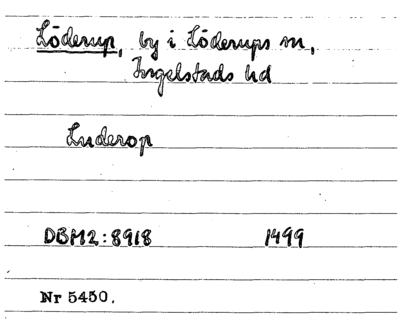 Löderup, by i Löderups sn,
Ingelstads hd
Luderop
DBM2:8918 1499
Nr 5450.